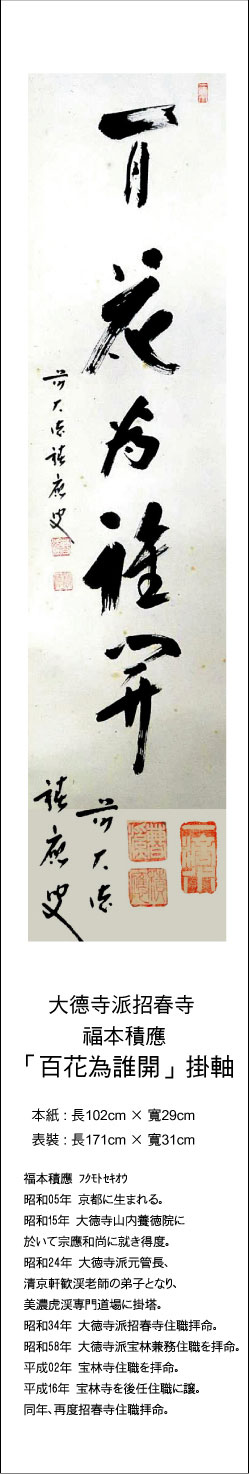 百花為誰開
前大徳積應叟
積應叟
前大徳
大德寺派招春寺
福本積應
「百花為誰開」掛軸
本紙：長102cm × 寬29cm
表裝：長171cm × 寬31cm
福本積應 ﾌｸﾓﾄｾｷｵｳ
昭和05年 京都に生まれる。
昭和15年 大徳寺山内養徳院に
於いて宗應和尚に就き得度。
昭和24年 大徳寺派元管長、
清京軒歓渓老師の弟子となり、
美濃虎渓専門道場に掛塔。
昭和34年 大徳寺派招春寺住職拝命。
昭和58年 大徳寺派宝林兼務住職を拝命。
平成02年 宝林寺住職を拝命。
平成16年 宝林寺を後任住職に譲。
同年、再度招春寺住職拝命。